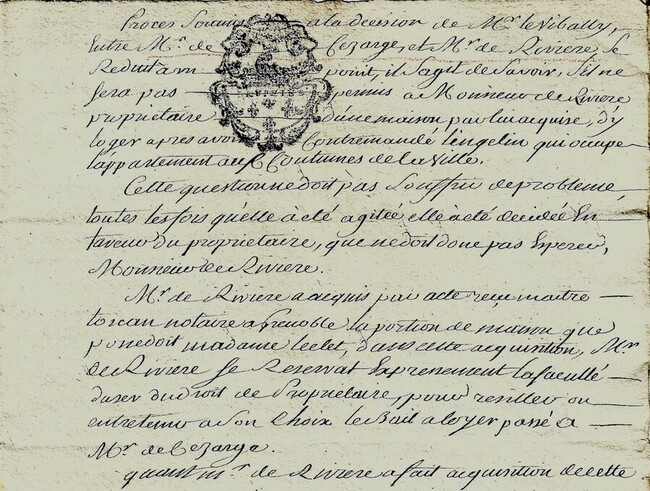 Procés Soumis a la decision de Mr. le Vibally,
Entre Mr. de Bezarge, et Mr. de Riviere, Se
Reduit a un point, il Sagit de Savoir, S'il ne
Sera pas permis a Monsieur de Riviere
proprietaire d'une maison par lui acquise, d'y
loger apres avoir Contremandé l'engelin qui occupe
l'appartement au Coutumes de la Ville.
Cette question ne doit pas Souffrir de probleme,
toutes les fois quelle à été agitée elle a été decidée En
faveur du proprietaire, que ne doit donc pas Esperer,
Monsieur de Riviere.
Mr. de Riviere a acquis par acte reçu maitre
toscan notaire a Grenoble la portion de maison que
possedoit madame leclet, dans cette acquisition, Mr.
de Riviere Se Reservat Expressement la faculté
duser du droit de Proprietaire, pour resilier ou
entretenir a Son Choix le Bail a loyer passé a
Mr. de Bezarge.
quant Mr. de Riviere a fait acquisition de cette